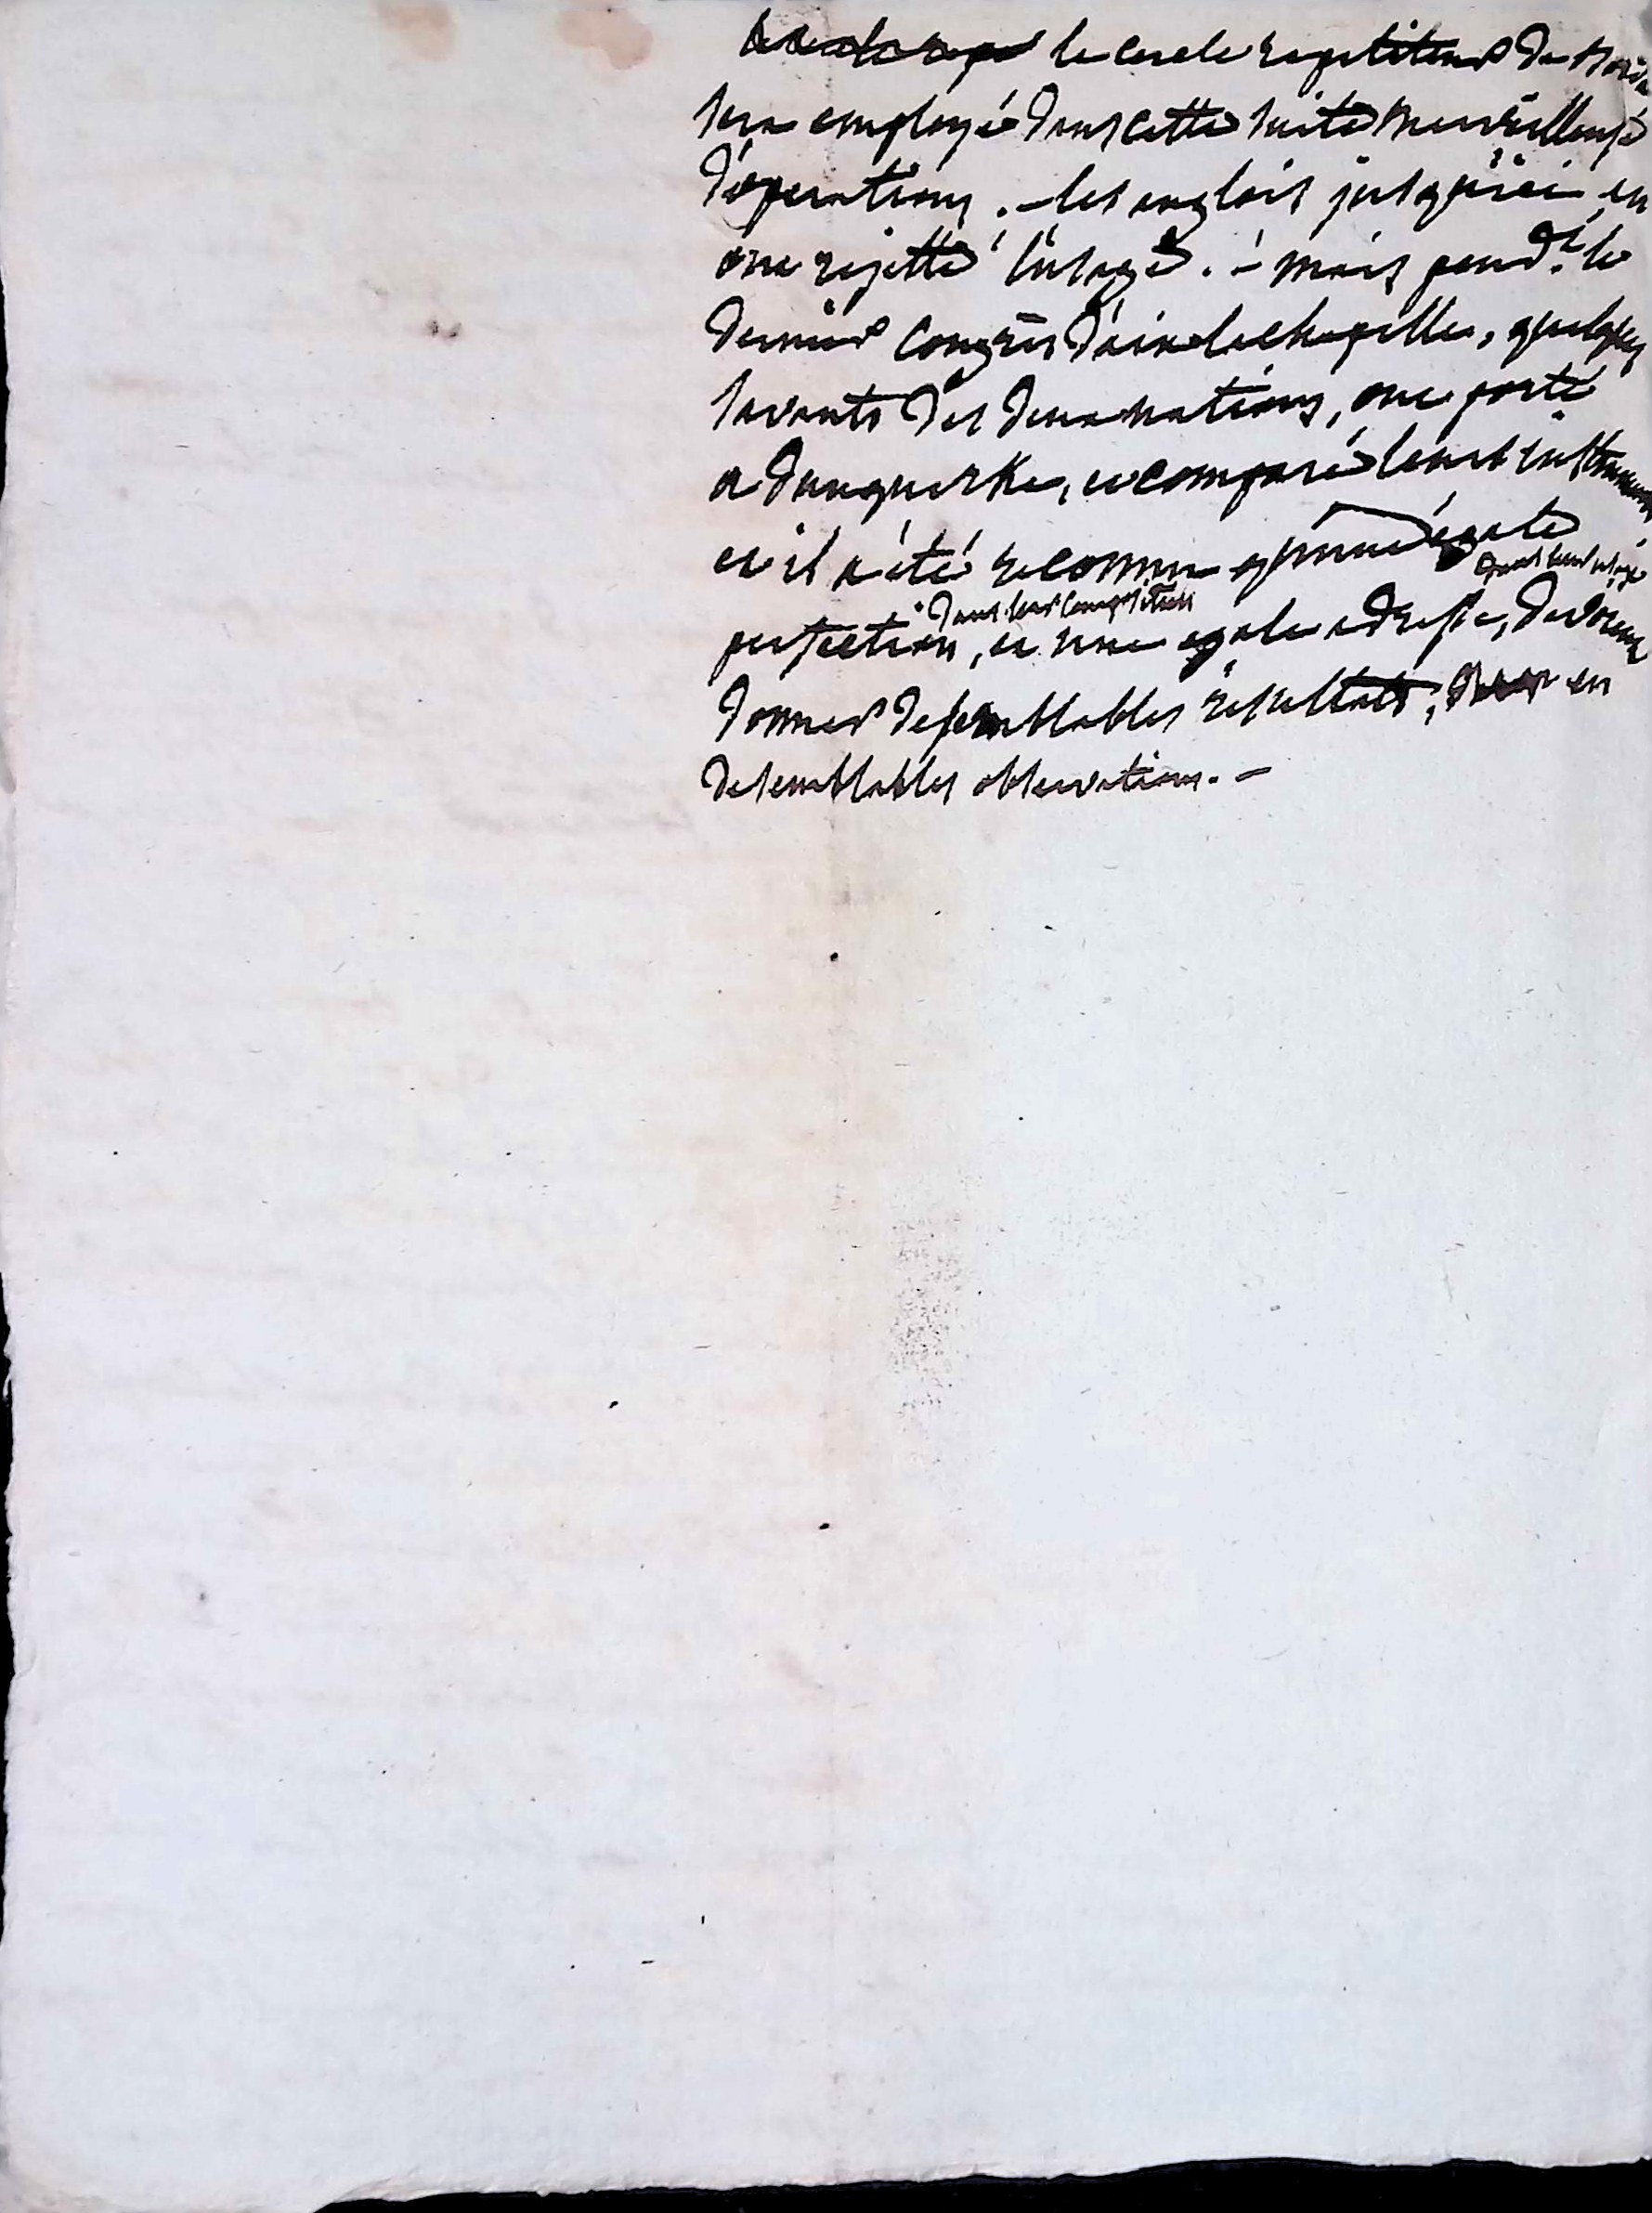 le cercle repetiteur de Borda
sera employé dans cette suite merveilleuse
d'operations. - les anglois jusqu'ici en
ont rejetté l'usage. - mais pend.t le
dernier congrès d'aixlachapelle, quelques
savants des deux nations, ont porté
a dunquerke, et comparé leurs instruments
et il a été reconnu qu'une égale
dans leur usage
dans leur composition
perfection, et une egale adresse, devoient
donner de semblables resultats, en
de semblables observations. -